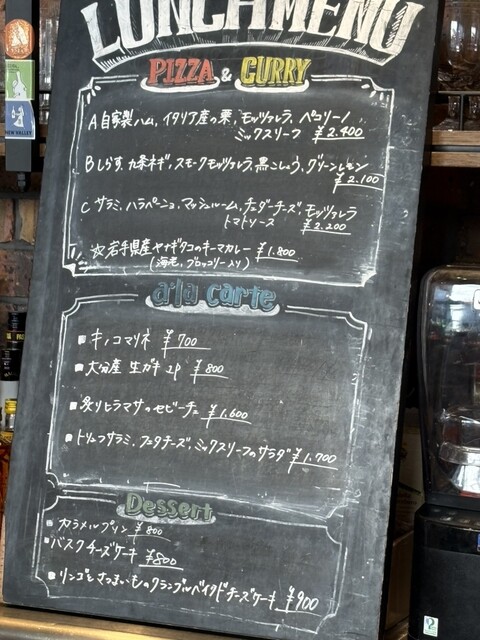 LUNCH MENU
PIZZA & CURRY
A 自家製ハム、イタリア産の栗、モッツァレラ、ペコリーノ
ミックスリーフ ¥2.400
B しらす、九条ネギ、スモークモッツァレラ、黒こしょう、グリーンレモン
¥2.100
C サラミ、ハラペーニョ、マッシュルーム、チェダーチーズ、モッツァレラ
トマトソース ¥2.200
☆岩手県産ヤナギダコのキーマカレー ¥1.800
(海老、ブロッコリー入り)
a'la carte
■キノコマリネ ¥700
■大分産 生ガキ 2p ¥800
■炙りヒラマサのセビーチェ ¥1.600
■トリュフサラミ、フェタチーズ、ミックスリーフのサラダ ¥1.700
Dessert
■カラメルプリン ¥800
■バスクチーズケーキ ¥800
■リンゴとさつまいものクランブルベイクドチーズケーキ ¥900